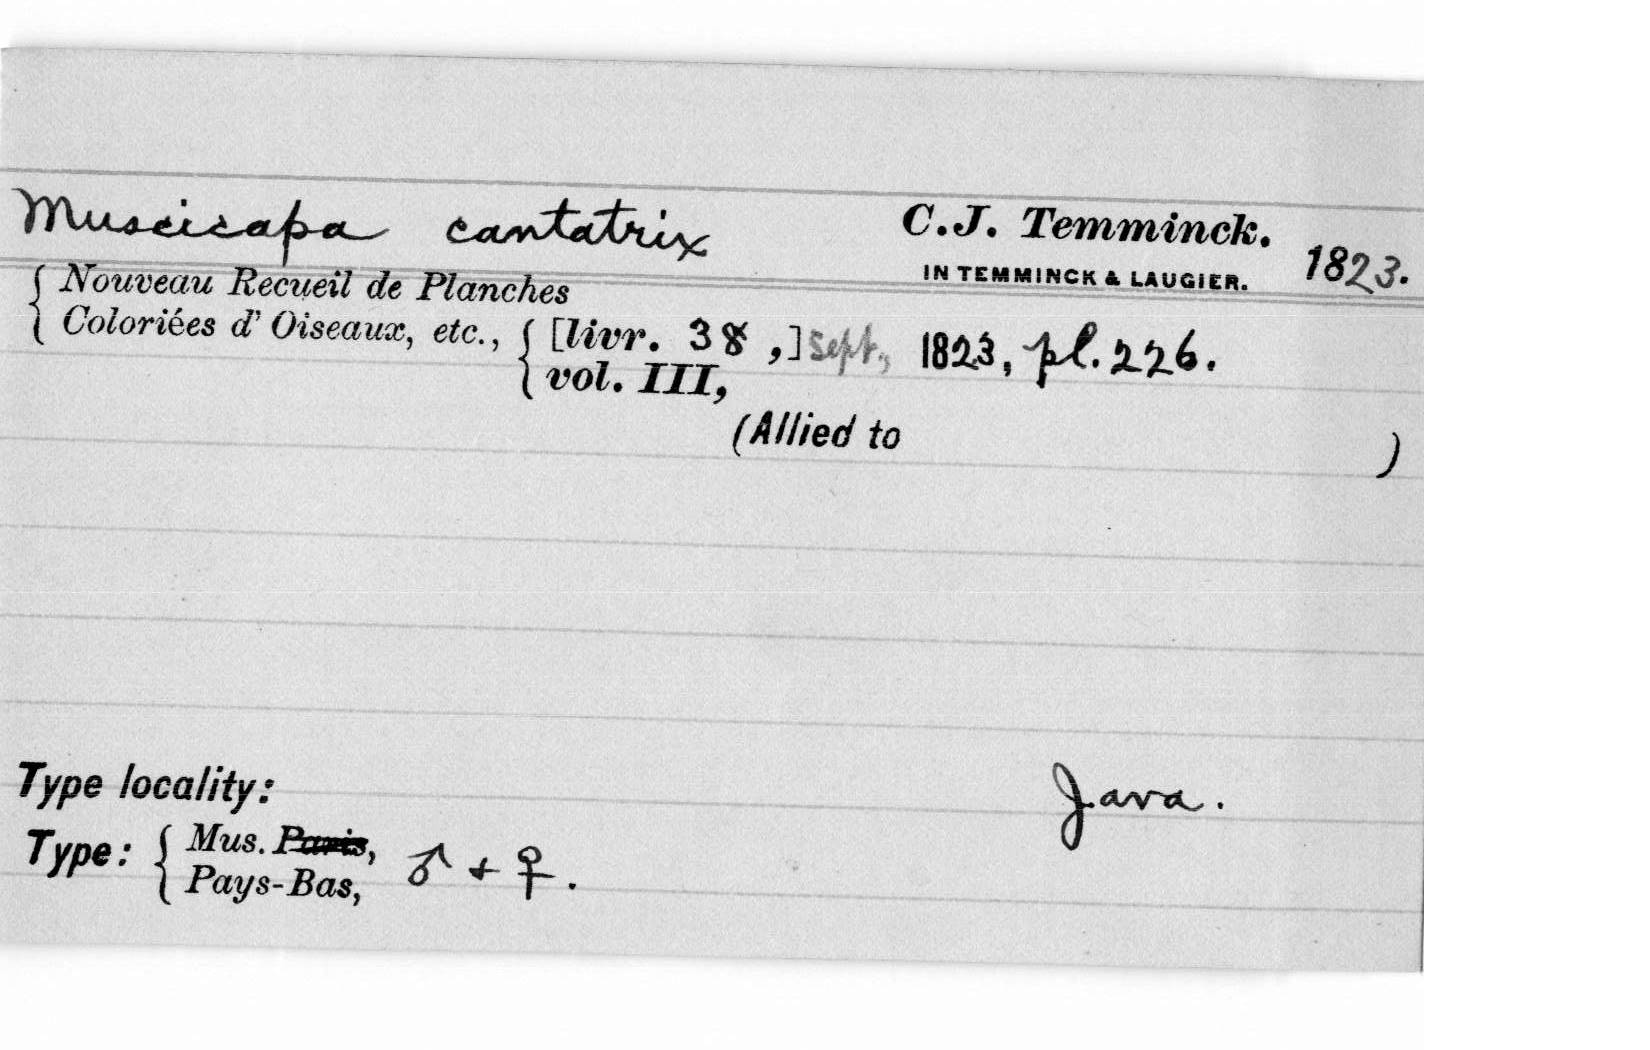 Muscicapa cantatrix C.J. Temminck.
IN TEMMINCK & LAUGIER. 1823.
{ Nouveau Recueil de Planches
{ Coloriées d' Oiseaux, etc., { [livr. 38 ,] Sept., 1823, pl. 226.
{ vol. III,
(Allied to )
Type locality: Java.
Type: { Mus. Paris,
{ Pays-Bas, ♂ + ♀.